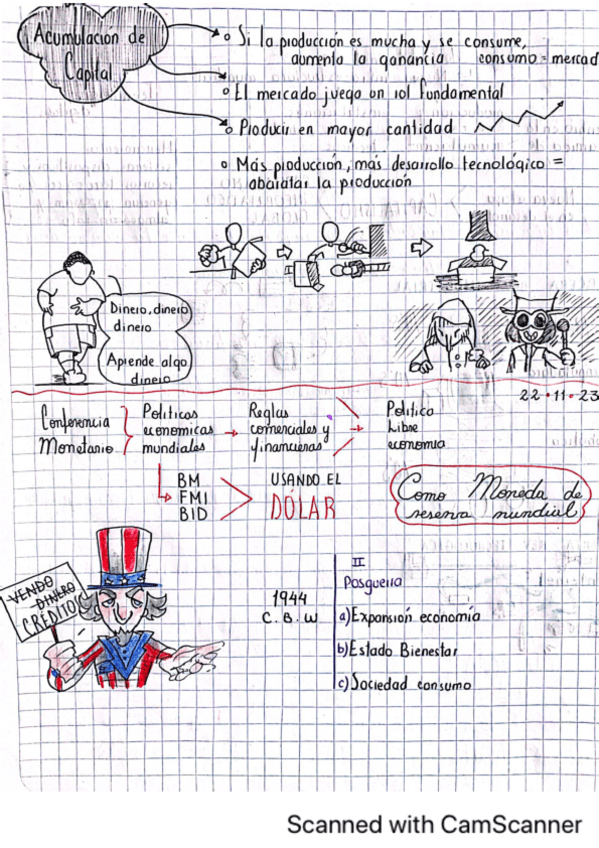 Acumulación de
Capital
Si la producción es mucha y se consume,
aumenta la ganancia consumo = mercad
El mercado juega un rol fundamental
Producir en mayor cantidad
Más producción, más desarrollo tecnológico =
abaratar la producción
Dinero, dinero
dinero
Aprende algo
dinero
22.11.23
Conferencia
Monetario
Politicas
economicas
mundiales
Reglas
comerciales y
financieras
Politica
Libre
economia
BM
FMI
BID
USANDO EL
DÓLAR
Como Moneda de
reserva mundial
VENDO
DINERO
CREDITOS
1944
C. B. W
II
Posguerra
a) Expansión economía
b) Estado Bienestar
c) Sociedad consumo
Scanned with CamScanner